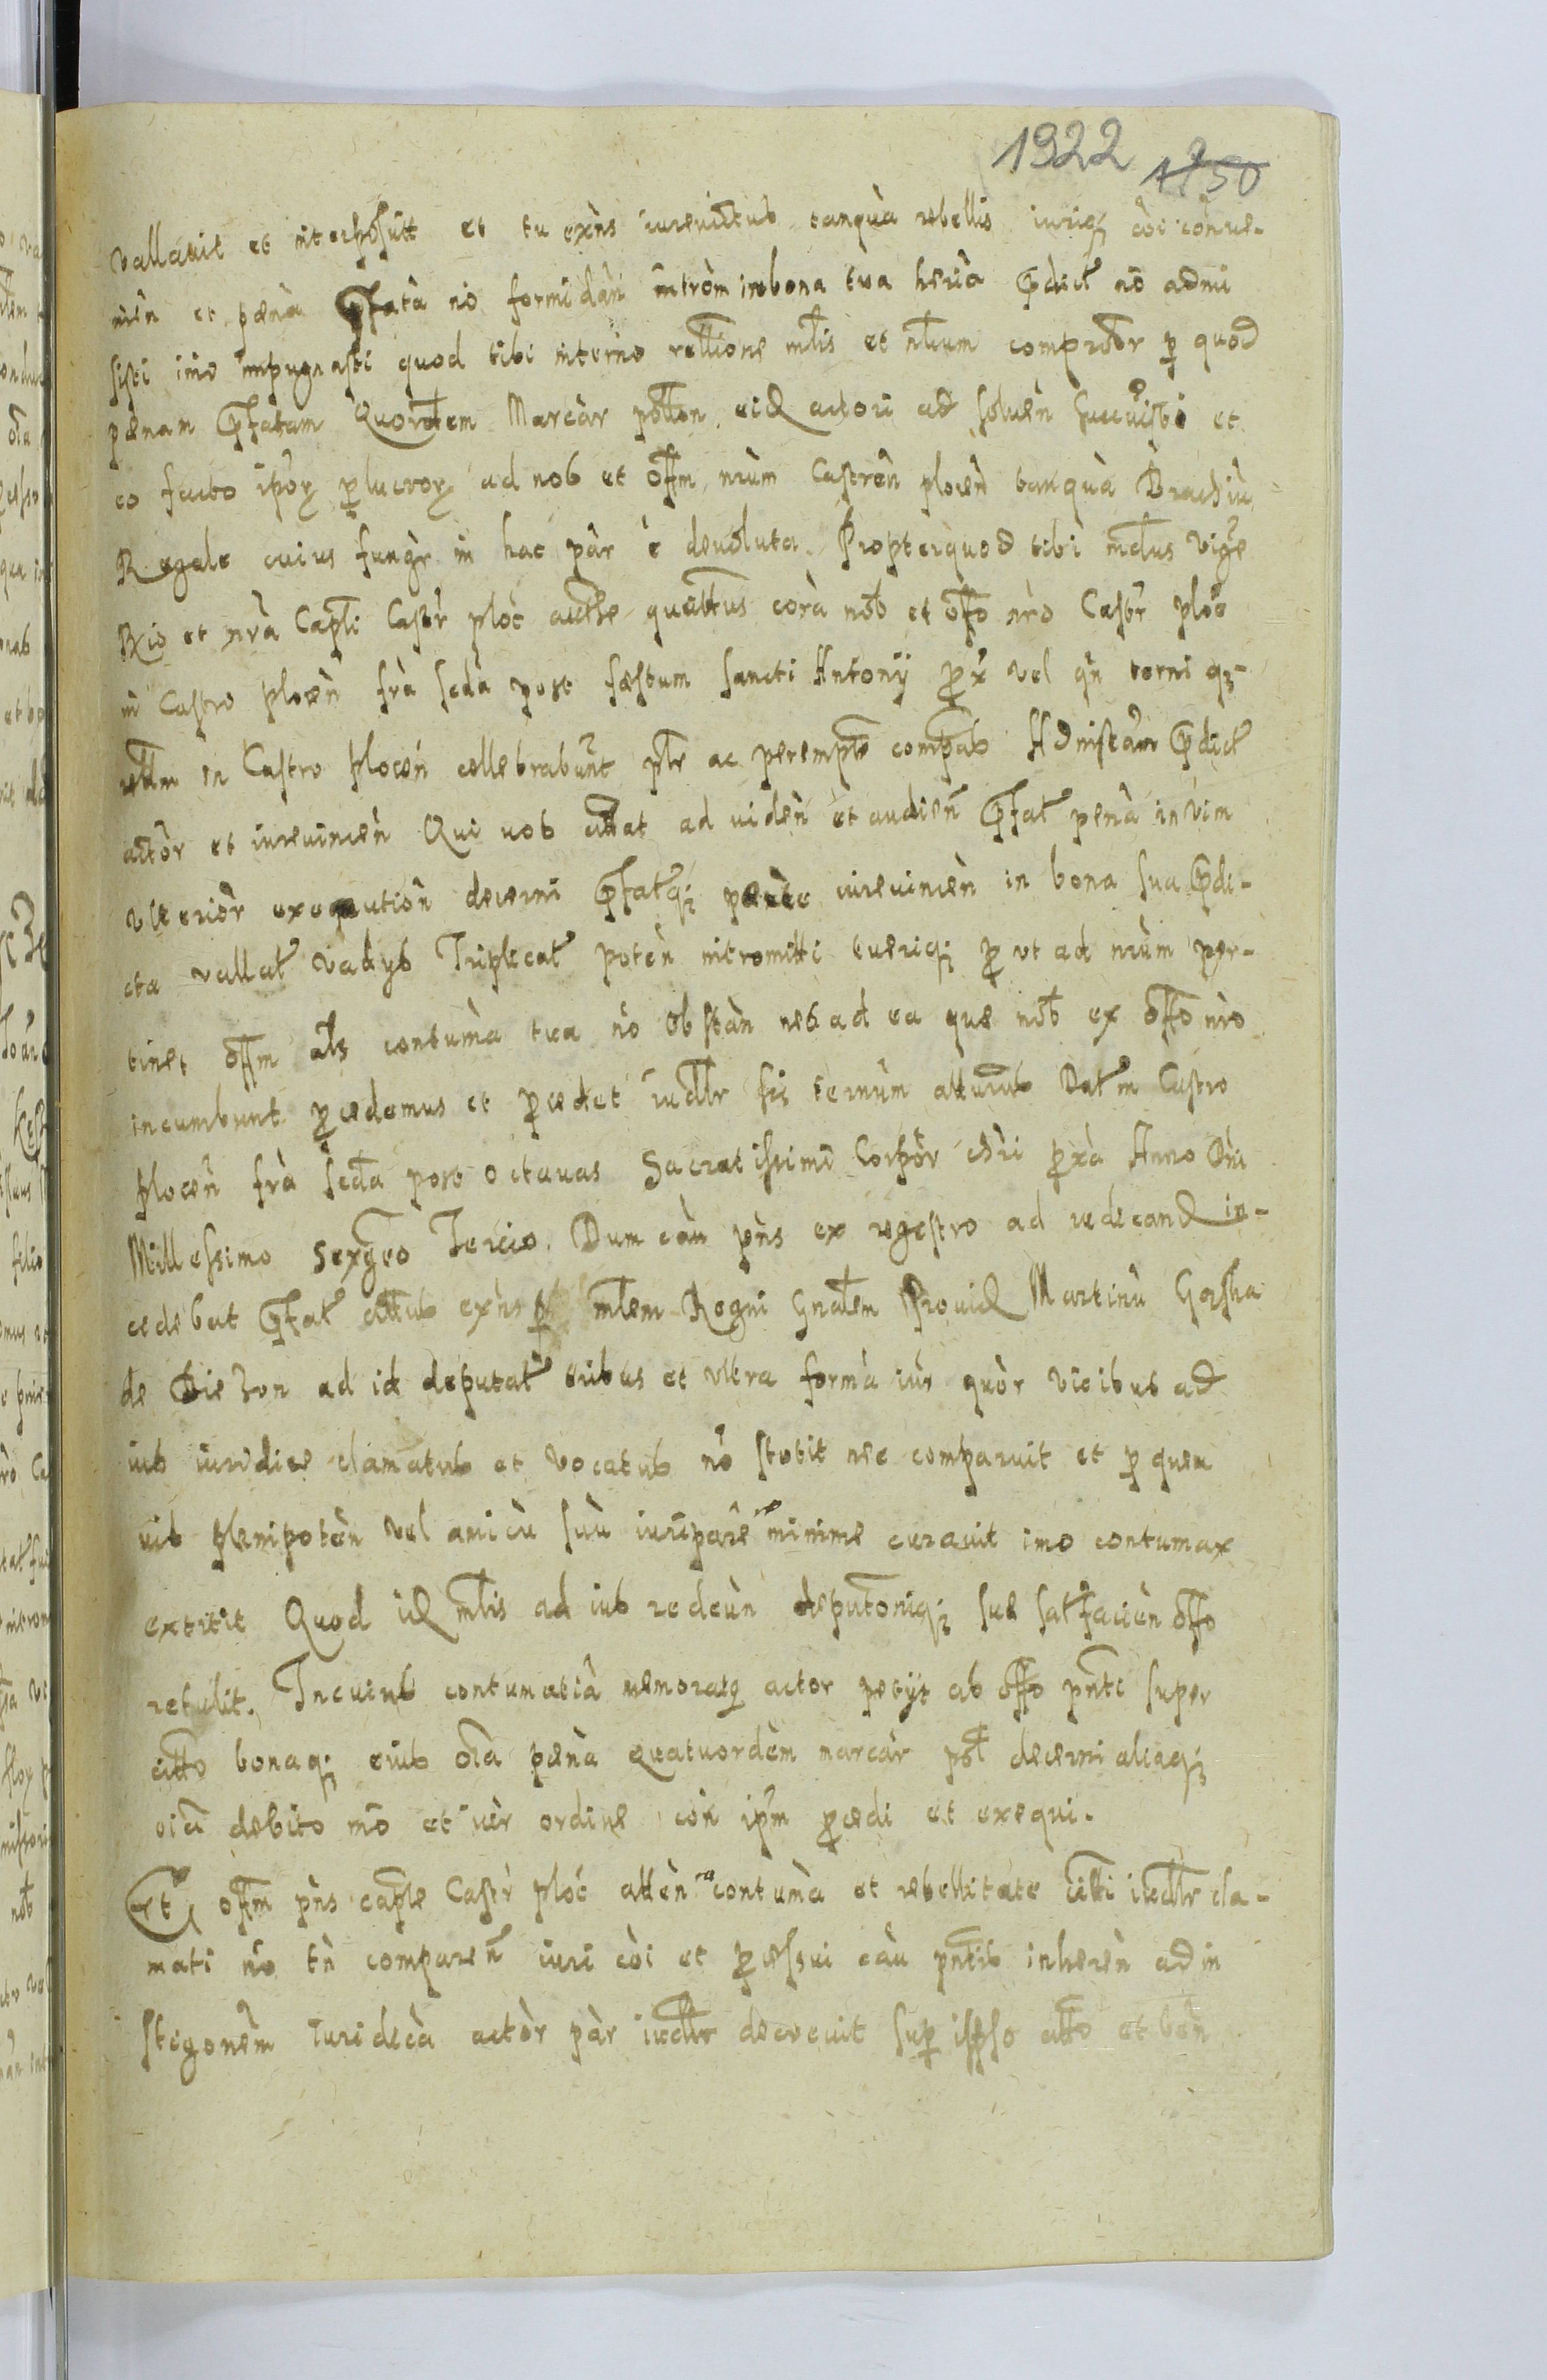 1922 1750
vallavit et interposuit et tu exñs iurevictus tanquà rebellis iuriq; còi conve-
nièn et pœnà pfatà nò formidàn intròm in bona tua heria pdict nò admi
sisti imo impugnasti quod tibi interno rellione mlis et nlium compidtor p quod
pœnam pfatam Quordem Marcàr pollon. eid actori ad solvèn succuisti et
eo facto ipor p lucror ad nos et offm nrùm Castrèn plocèn tanquà Brachiù
Regale cuius fungr in hac pàr è devoluta. Propterquod tibi mdmus vigre
Rio et nrà Capli Castr ploc authe quattus corà nob et offo nro Castr ploc
in Castro plocèn frà scdà post fæstum sancti Antonij pox vel qñ termi q-
rellm in Castro plocèn cellebrabunt plr ac perempte compas Ad instàm pdict
actòr et iurevincèn Qui vos citat ad vidèn et audièn pfat penà in vim
ulteriòr exequutiòn decerni pfatq; pœnte iurevincèn in bona sua pdi-
cta vallat vadys Triplicat potèn intromitti tueriq; pvt ad nrùm per-
tinet offm als contumà tua nò obstàn nos ad ea que nob ex offo nro
incumbunt pcedemus et pcedet iudllr sis termùm atturus Dat in Castro
plocèn frà scda post octavas Sacratissimi Corpòr chri pxà Anno Dni
Millessimo Sexgeo Tercio. Dum càu pñs ex regestro ad iudicand in-
cedebat pfat cittus exñs p mlem Regni Gnalem Provid Martinù Gorska
de Diezon ad id deputat tribus et ultra formà iùr quòr vicibus ad
ius iuridice clamatus et vocatus nò stetit nec comparuit et p quem
vis plenipotèn vel amicù suù iuri parere minime curavit imo contumax
extitit Quod id mlis ad ius redeùn deputoniq; sue satfacièn offo
retulit. In cuius contumatià memoratq actor petijt ab offo pnti super
citto bonaq; eius oia pœnà quatuordèm marcàr pol decerni aliaq;
oia debito mò et iùr ordine còn ipm pcedi et exequi.
Et offm pñs caple Castr ploc attèn contumà et rebellitate citti iudllr cla-
mati nò tñ comparèn iuri còi et pcessui càu pntis inherèn ad in
stegonèm Iuridicà actòr pàr iudllr decrevit sup ipso citto et bon